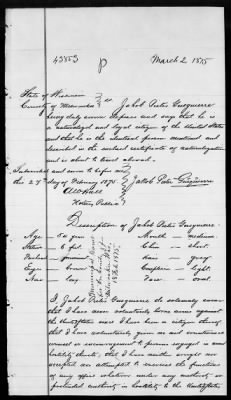 43853 P March 2 1875
State of Wisconsin
County of Milwaukee } ss Jakob Peter
being duly sworn deposes and says that he is
a naturalized and loyal citizen of the United States
and that he is the identical person mentioned and
described in the certificate of naturalization
and is about to travel abroad.
Subscribed and sworn to before me
this 27th day of February 1875 Jakob Peter
Notary Public
Description of Jakob Peter
Age 50 years Mouth medium
Stature 6 feet Chin short
Forehead Hair grey
Eyes brown Complexion light
Nose long Face oval
I, Jakob Peter do solemnly swear
that I have never voluntarily borne arms against
the United States since I have been a citizen thereof,
that I have voluntarily given no aid countenance
counsel or encouragement to persons engaged in armed
hostility thereto, that I have neither sought nor
accepted nor attempted to exercise the functions
of any office whatever under any authority or
pretended authority in hostility to the United States